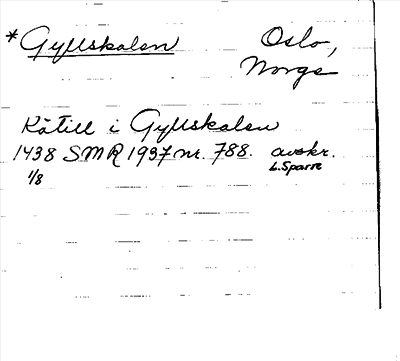 *Gyllskalen Oslo,
Norge
Kätill i Gyllskalen
1438 SMR 1937 nr. 788. avskr.
1/8 L. Sparre